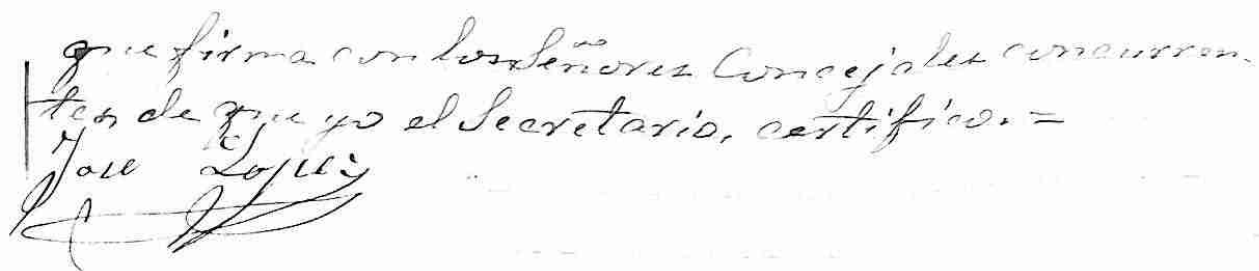 que firma con los Señores Concejales concurren-
tes de que yo el Secretario, certifico. =
José López